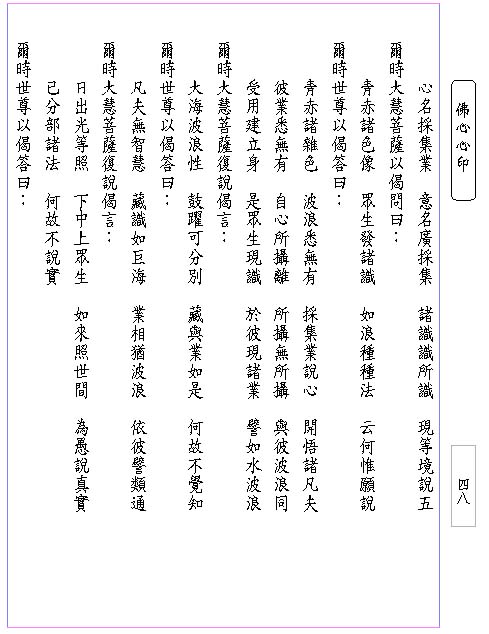 佛心心印
心名採集業　意名廣採集　諸識識所識　現等境說五
爾時大慧菩薩以偈問曰：
青赤諸色像　眾生發諸識　如浪種種法　云何惟願說
爾時世尊以偈答曰：
青赤諸雜色　波浪悉無有　採集業說心　開悟諸凡夫
彼業悉無有　自心所攝離　所攝無所攝　與彼波浪同
受用建立身　是眾生現識　於彼現諸業　譬如水波浪
爾時大慧菩薩復說偈言：
大海波浪性　鼓躍可分別　藏與業如是　何故不覺知
爾時世尊以偈答曰：
凡夫無智慧　藏識如巨海　業相猶波浪　依彼譬類通
爾時大慧菩薩復說偈言：
日出光等照　下中上眾生　如來照世間　為愚說真實
已分部諸法　何故不說實
爾時世尊以偈答曰：
四八